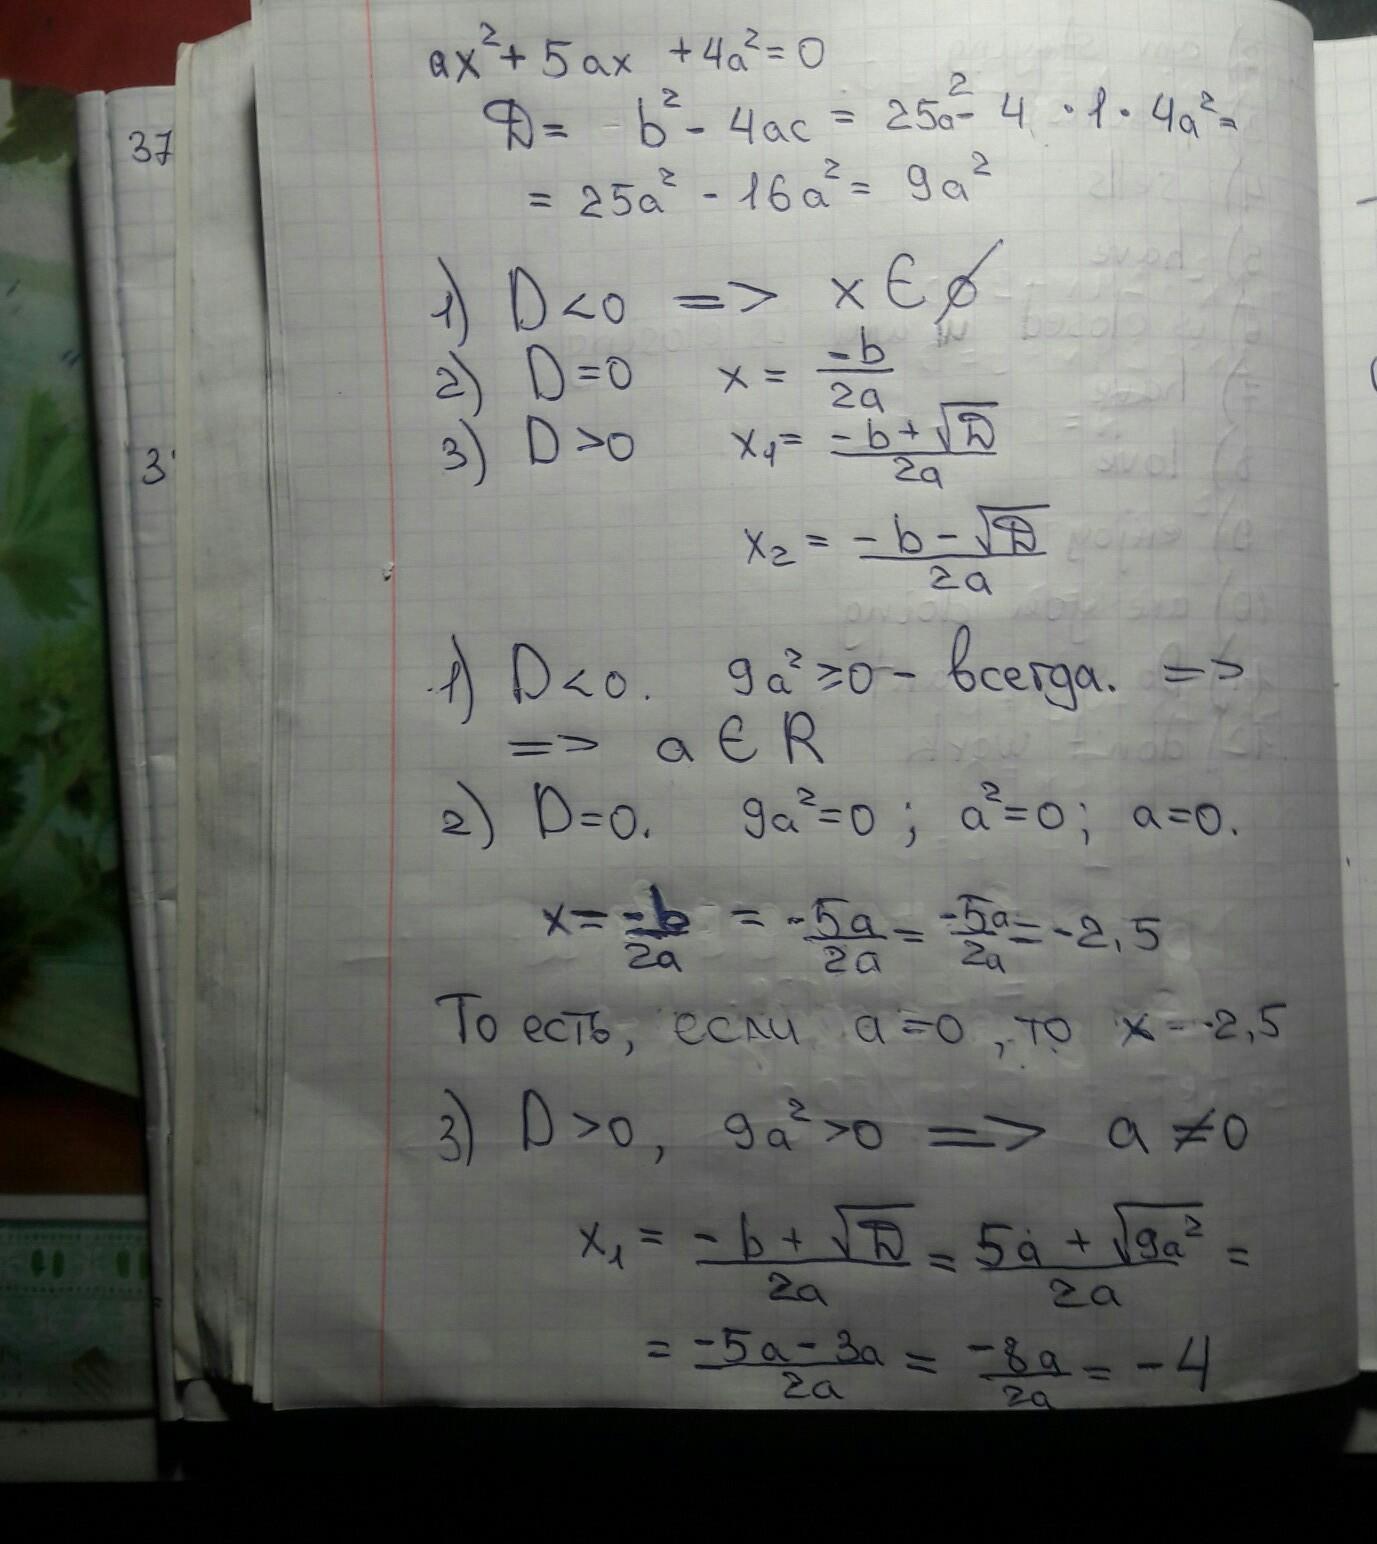 ax² + 5ax + 4a² = 0
D = b² - 4ac = 25a² - 4 · 1 · 4a² =
= 25a² - 16a² = 9a²
37
1) D < 0 => x ∈ ∅
2) D = 0 x = -b/2a
3) D > 0 x₁ = -b + √D/2a
3
x₂ = -b - √D/2a
1) D < 0. 9a² ≥ 0 - всегда. =>
=> a ∈ R
2) D = 0. 9a² = 0 ; a² = 0 ; a = 0.
x = -b/2a = -5a/2a = -5a/2a = -2,5
То есть, если a = 0, то x = -2,5
3) D > 0, 9a² > 0 => a ≠ 0
x₁ = -b + √D/2a = 5a + √9a²/2a =
= -5a - 3a/2a = -8a/2a = -4